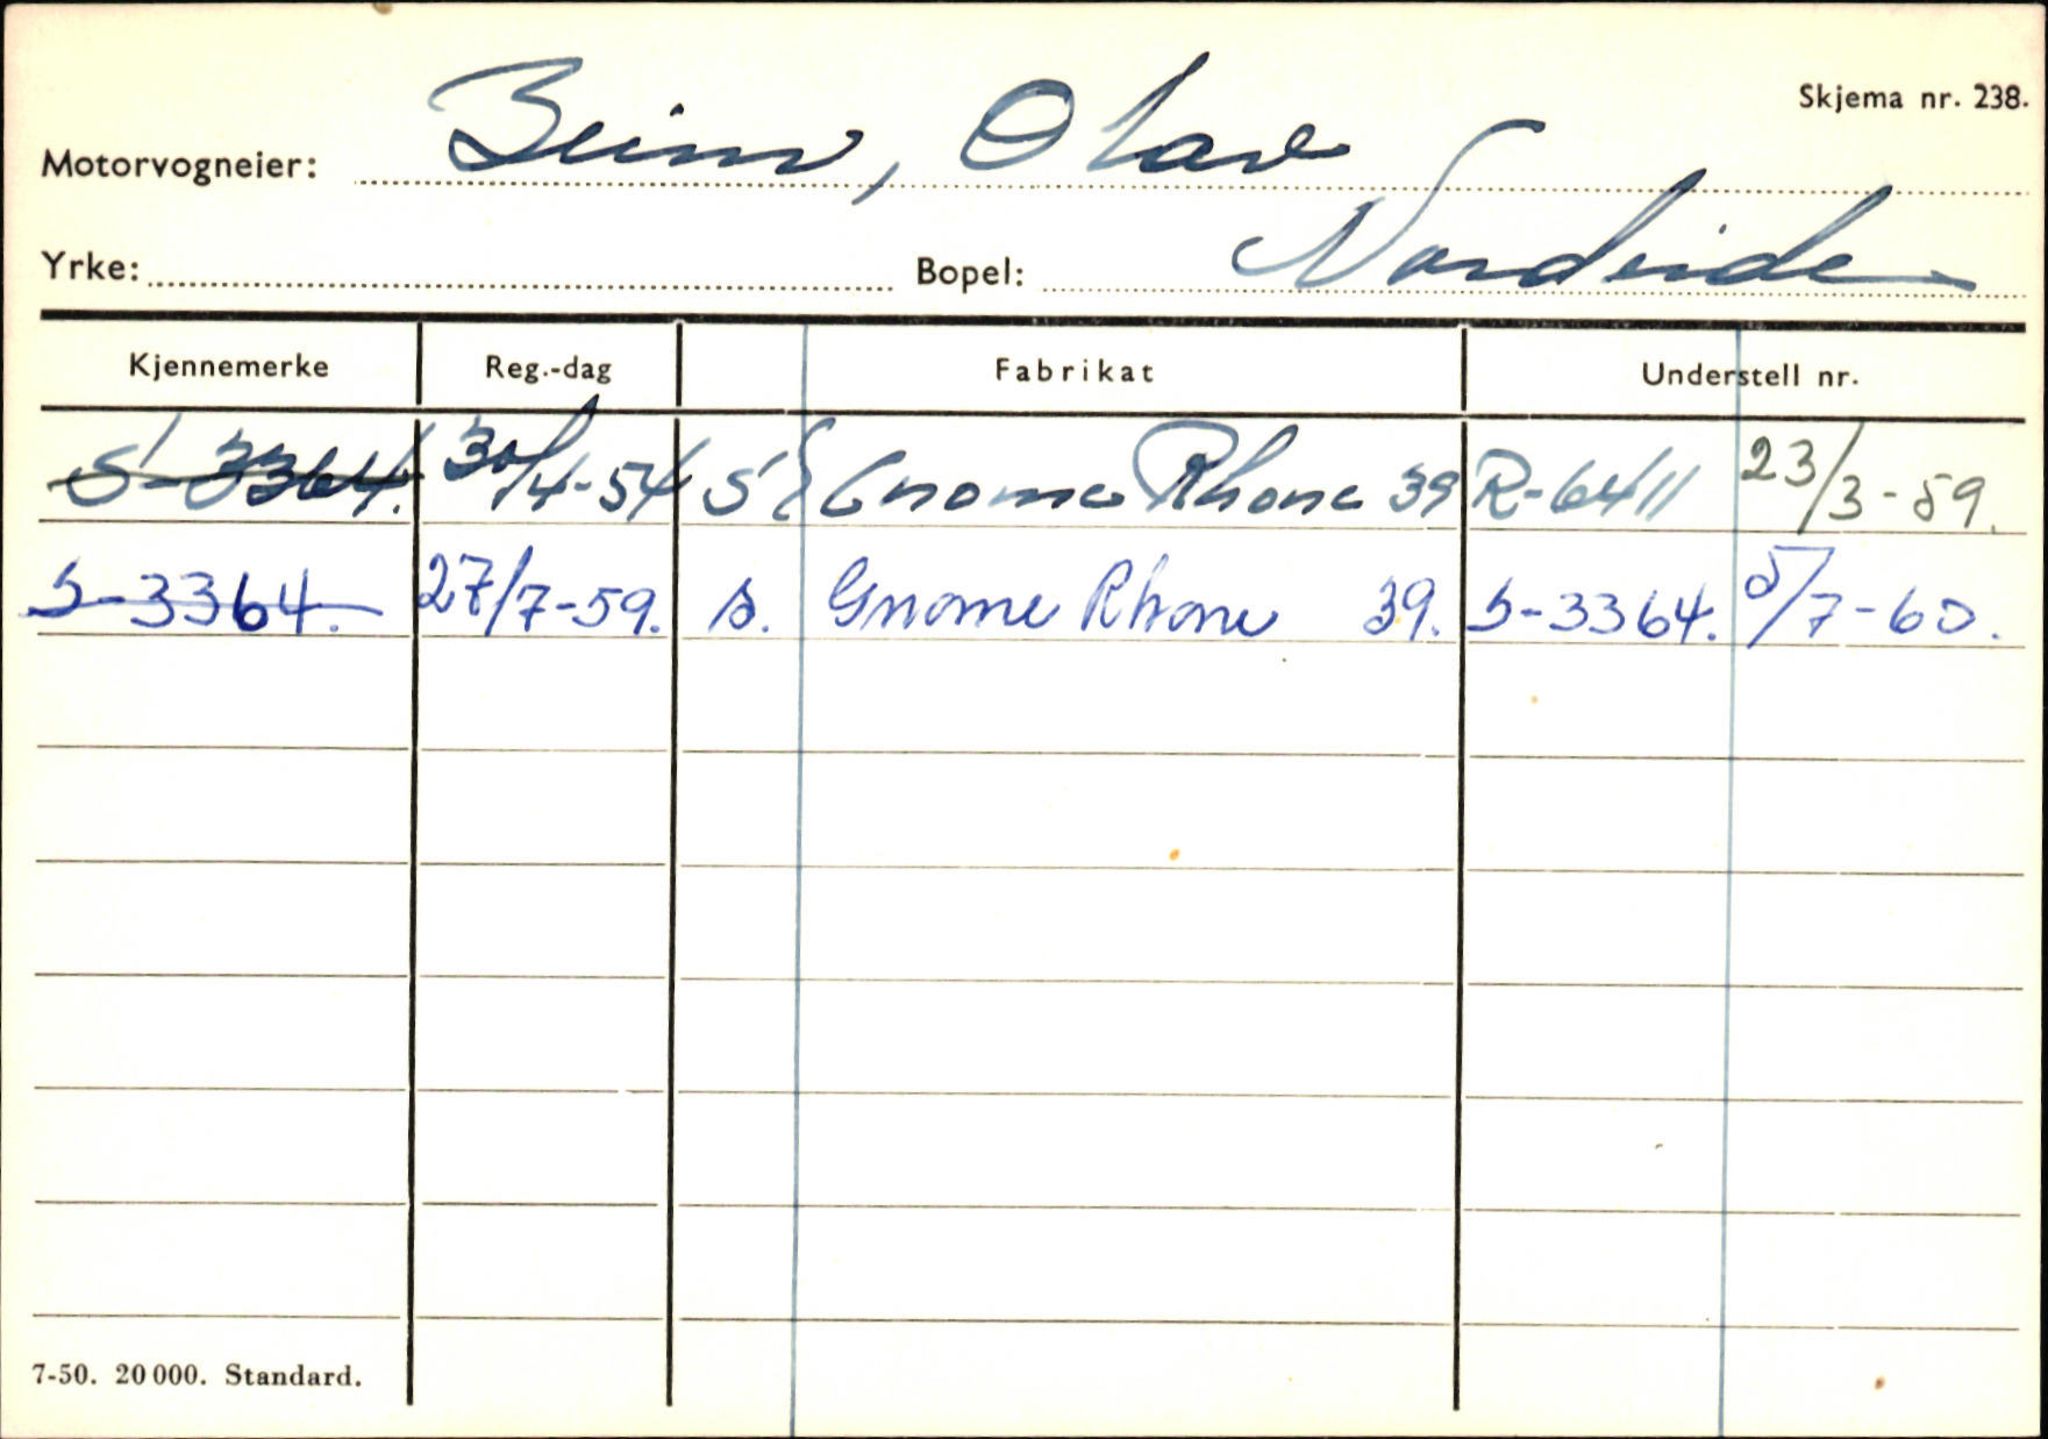 Skjema nr. 238.
Motorvogneier: Beim, Olav
Yrke: Bopel: Nordeide
Kjennemerke Reg.-dag Fabrikat Understell nr.
S-3364. 30/4-54 S Gnome Rhone 39 R-6411 23/3-59.
S-3364. 27/7-59. s. Gnome Rhone 39. S-3364. 5/7-60.
7-50. 20 000. Standard.